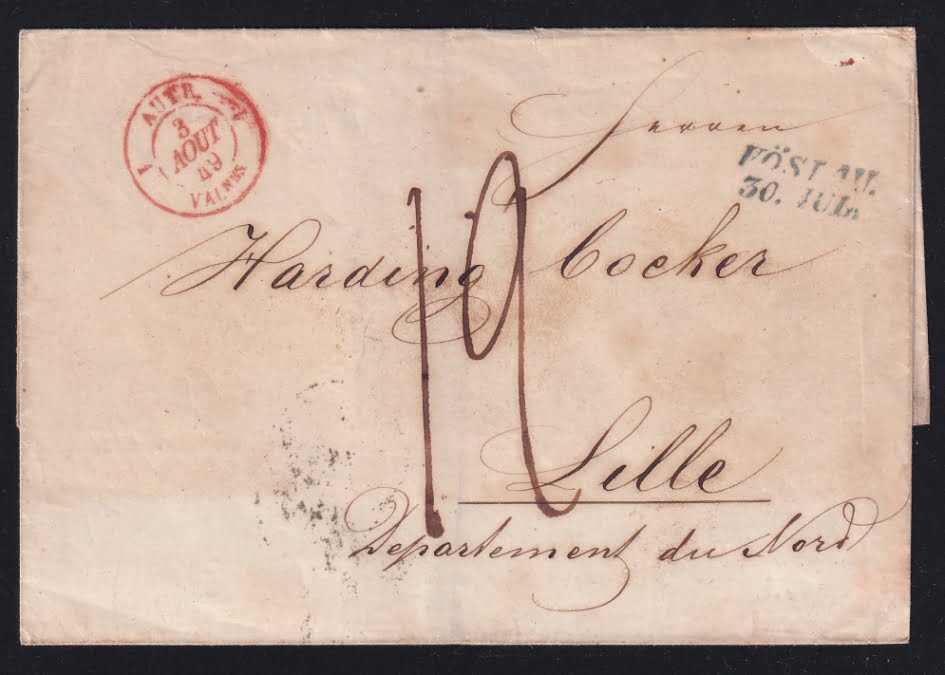 1 AUTR.
3
AOUT
49
VALNES
Herren
VÖSLAU.
30. JUL.
Harding Cocker
12
Lille
Departement du Nord